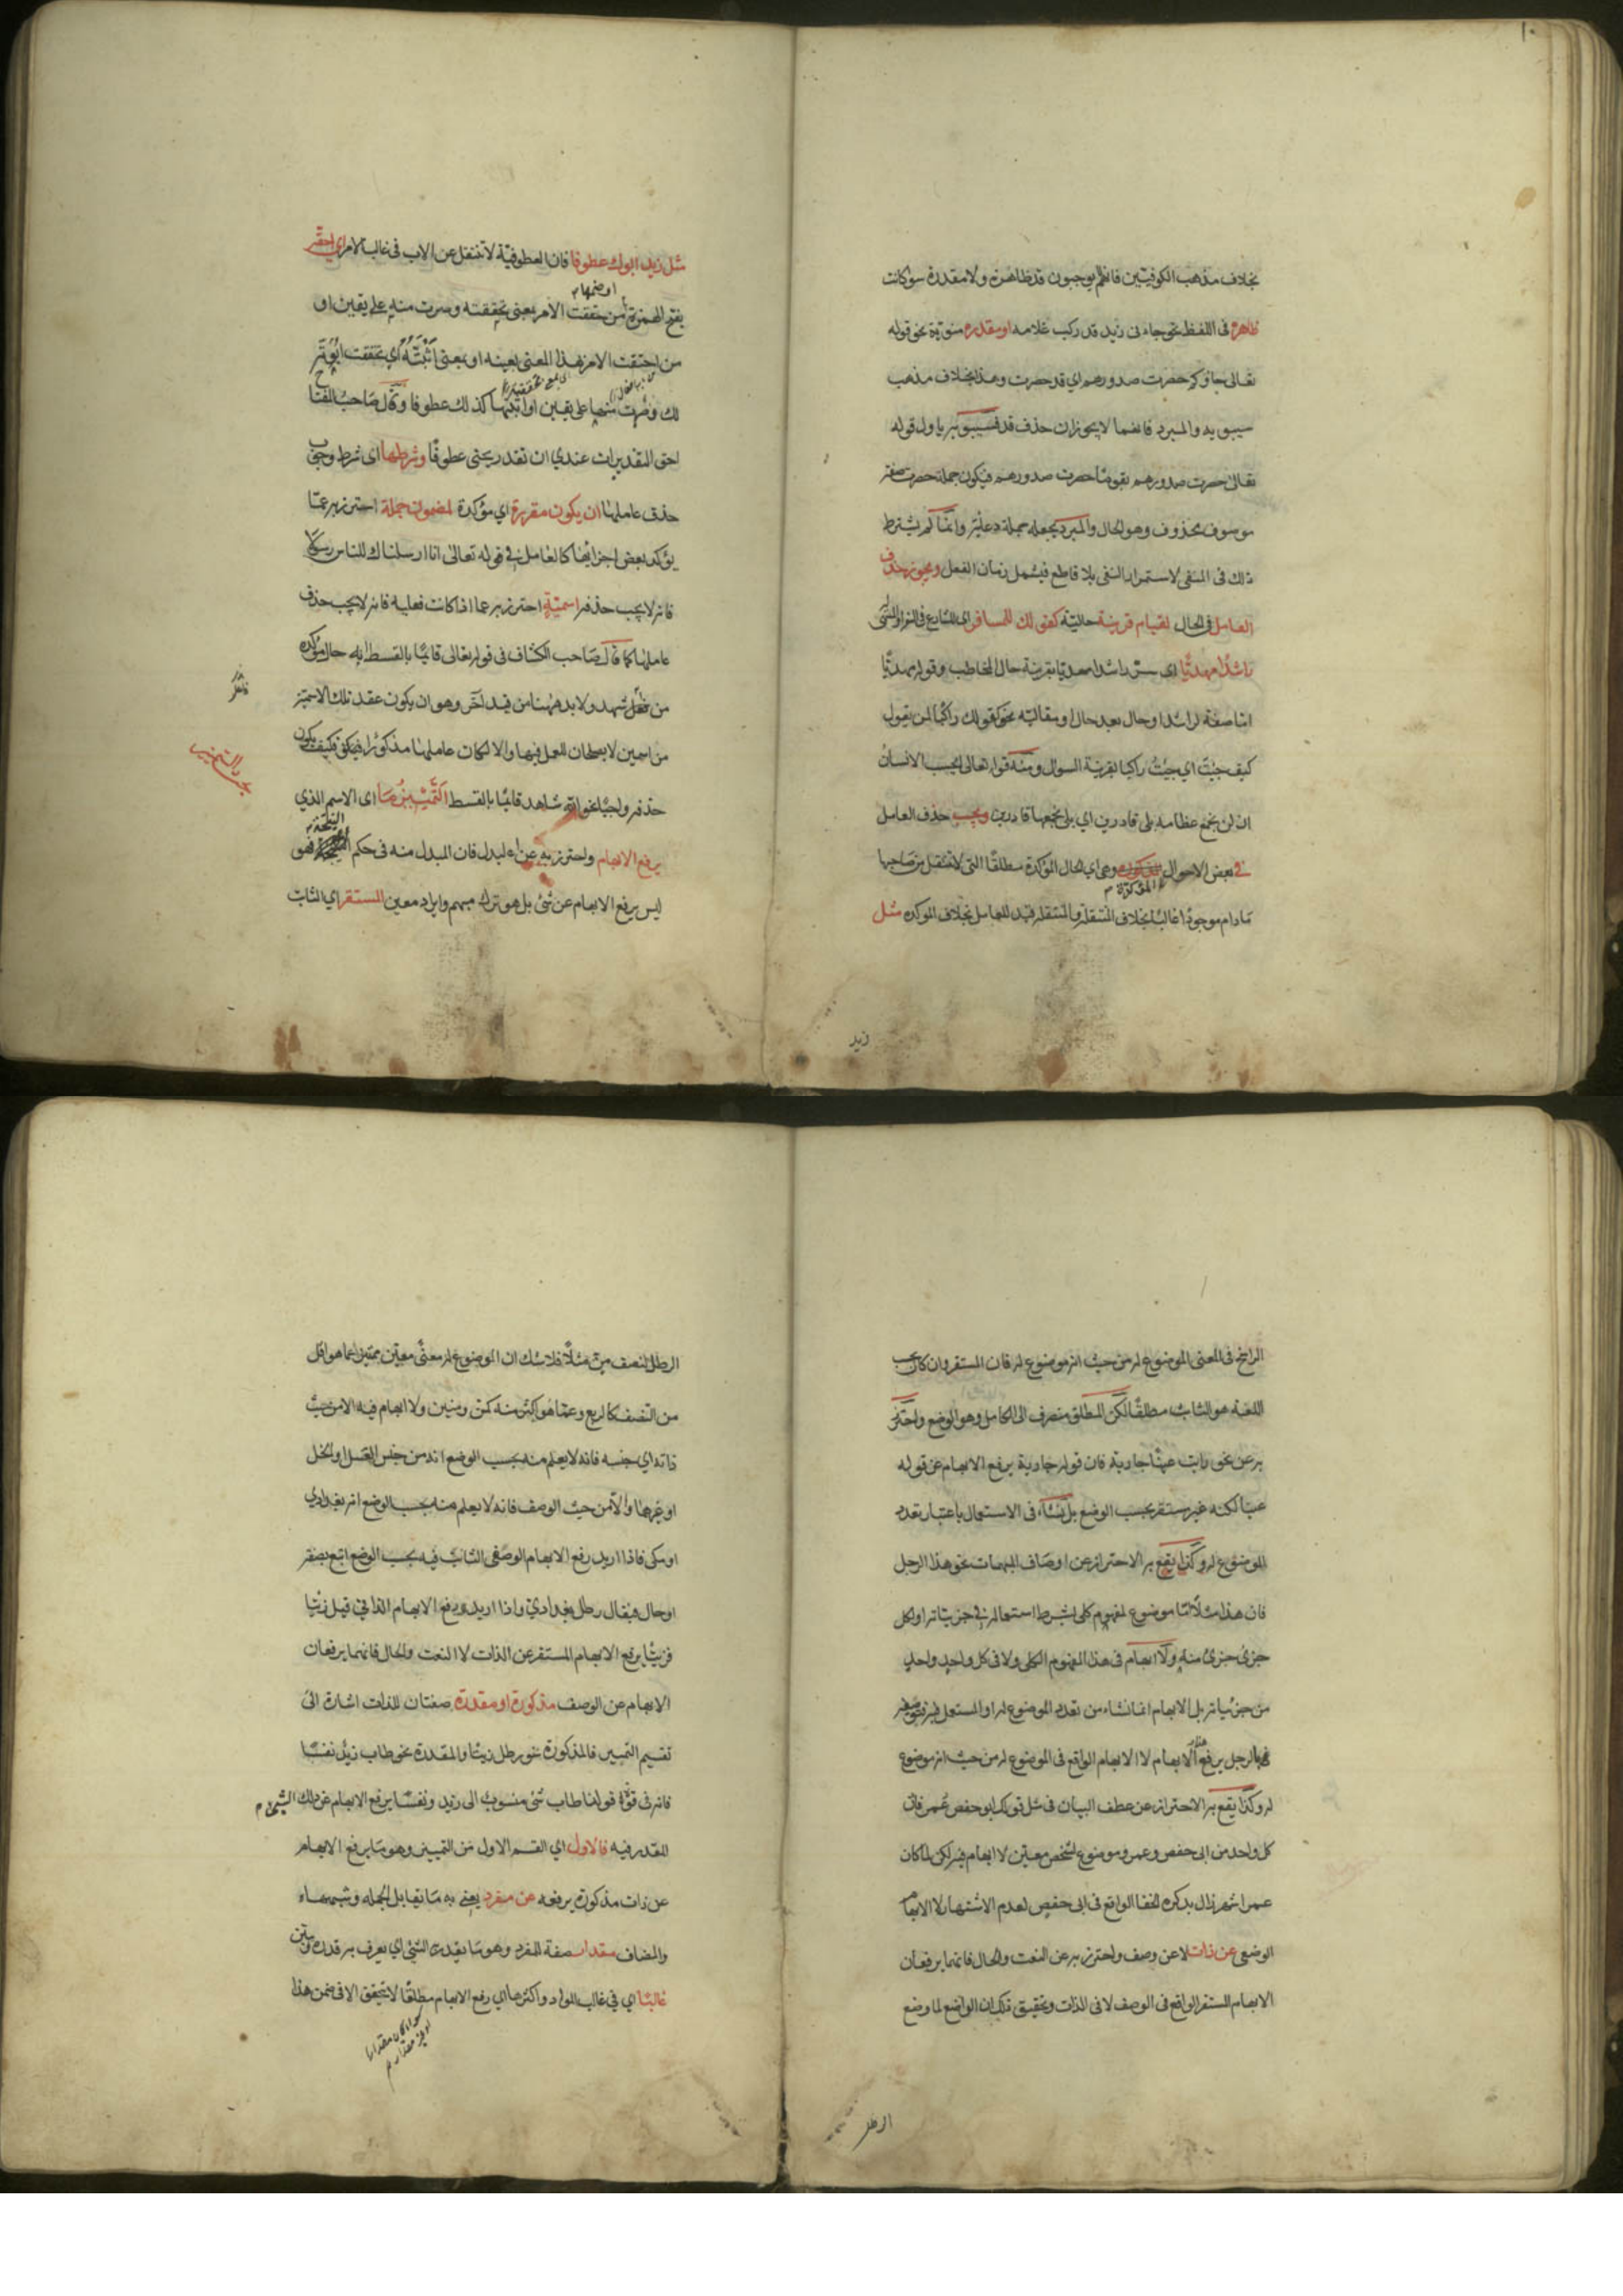 ١٠
بخلاف مذهب الكوفيين فانهم يوجبون قد ظاهرة ولا مقدرة سواء كانت
ظاهرة فى اللفظ نحو جاءنى زيد قد ركب غلامه او مقدرة منوية نحو قوله
تعالى جاؤكم حصرت صدورهم اي قد حصرت وهذا بخلاف مذهب
سيبويه والمبرد فانهما لا يجوزان حذف قد فسيبويه يأول قوله
تعالى حصرت صدورهم بقوما حصرت صدورهم فيكون جملة حصرت صفة
موصوف محذوف وهو الحال والمبرد يجعله جملة دعائية وانما لم يشترط
ذلك فى المنفى لاستمرار النفى بلا قاطع فيشمل زمان الفعل ويجوز حذف
العامل فى الحال لقيام قرينة حالية كقولك للمسافر اى للشارع فى السفر او المتهيئ له
راشدا مهديا اى سر راشدا مهديا بقرينة حال المخاطب وقوله مهديا
اما صفة لراشدا او حال بعد حال او مقالية نحو كقولك راكبا لمن يقول
كيف جئت اي جئت راكبا بقرينة السؤال ومنه قوله تعالى ايحسب الانسان
ان لن نجمع عظامه بلى قادرين اي بلى نجمعها قادرين ويجب حذف العامل
فى بعض الاحوال المؤكدة وهى اي الحال المؤكدة مطلقا التى لا تنتقل من صاحبها
ما دام موجودا غالبا بخلاف المنتقلة والمنتقلة قيد للعامل بخلاف المؤكدة مثل
زيد
مثل زيد ابوك عطوفا فان العطوفية لا تنتقل عن الاب فى غالب الامر اي احقه
بفتح الهمزة او ضمها من حققت الامر بمعنى تحققته وصرت منه على يقين او
من احققت الامر بهذا المعنى بعينه او بمعنى اثبته اي تحققت ابوته
لك وصرت منها على يقين او اثبتها كذلك عطوفا وقال صاحب المفتاح
احق التقديرات عندي ان تقدر يحنى عطوفا وشرطها اى شرط وجوب
حذف عاملها ان يكون مقررة اي مؤكدة لمضمون جملة احترز به عما
يؤكد بعض اجزائها كالعامل فى قوله تعالى انا ارسلناك للناس رسولا
فانه لا يجب حذفه اسمية احترز به عما اذا كانت فعلية فانه لا يجب حذف
عاملها كما قال صاحب الكشاف فى قوله تعالى قائما بالقسط انه حال مؤكدة
من فاعل شهد ولا بد ههنا من قيد آخر وهو ان يكون عقد تلك الاسمية
من اسمين لا يصلحان للعمل فيها والا لكان عاملها مذكورا فكيف يكون
حذفه واجبا نحو الله شاهد قائما بالقسط التمييز ما اى الاسم الذي
يرفع الابهام واحترز به عن البدل فان المبدل منه فى حكم التنحية فهو
ليس يرفع الابهام عن شئ بل هو ترك مبهم وايراد معين المستقر اي الثابت
الراسخ فى المعنى الموضوع له من حيث انه موضوع له فان المستقر وان كان بحسب
اللغة هو الثابت مطلقا لكن المطلق منصرف الى الكامل وهو الوضع واحترز
به عن نحو رايت عينا جارية فان قوله جارية يرفع الابهام عن قوله
عينا لكنه غير مستقر بحسب الوضع بل نشاء فى الاستعمال باعتبار تعدد
الموضوع له وكذا يقع به الاحتراز عن اوصاف المبهمات نحو هذا الرجل
فان هذا مثلا اما موضوع لمفهوم كلى بشرط استعماله فى جزئياته او لكل
جزئى جزئى منه ولا ابهام فى هذا المفهوم الكلى ولا فى كل واحد واحد
من جزئياته بل الابهام انما نشاء من تعدد الموضوع له او المستعمل فيه فتوصيفه
بالرجل يرفع هذا الابهام لا الابهام الواقع فى الموضوع له من حيث انه موضوع
له وكذا يقع به الاحتراز عن عطف البيان فى مثل قولك ابو حفص عمر فان
كل واحد من ابى حفص وعمر موضوع لشخص معين لا ابهام فيه لكن لما كان
عمر اشهر زال بذكره الخفا الواقع فى ابى حفص لعدم الاشتهار لا الابهام
الوضعى عن ذات لا عن وصف واحترز به عن النعت والحال فانهما يرفعان
الابهام المستقر الواقع فى الوصف لا فى الذات وتحقيق ذلك ان الواضع لما وضع
الرطل
الرطل لنصف من مثلا فلا شك ان الموضوع له معنى معين متميز عما هو اقل
من النصف كالربع وعما هو اكثر منه كمن ومنين ولا ابهام فيه الا من حيث
ذاته اي جنسه فانه لا يعلم منه بحسب الوضع انه من جنس العسل او الخل
او غيرهما والا من حيث الوصف فانه لا يعلم منه بحسب الوضع انه بغدادي
او مكى فاذا اريد رفع الابهام الوصفى الثابت فيه بحسب الوضع اتبع بصفة
او حال فيقال رطل بغدادي واذا اريد رفع الابهام الذاتى قيل زيتا
فزيتا يرفع الابهام المستقر عن الذات لا النعت والحال فانهما يرفعان
الابهام عن الوصف مذكورة او مقدرة صفتان للذات اشارة الى
تقسيم التمييز فالمذكورة نحو رطل زيتا والمقدرة نحو طاب زيد نفسا
فانه فى قوة قولنا طاب شئ منسوب الى زيد ونفسا يرفع الابهام عن ذلك الشئ
المقدر فيه فالاول اي القسم الاول من التمييز وهو ما يرفع الابهام
عن ذات مذكورة يرفعه عن مفرد يعنى به ما يقابل الجملة وشبهها
والمضاف مقدار صفة لمفرد وهو ما يقدر به الشئ اي يعرف به قدره ويبين
غالبا اي فى غالب المواد واكثرها اي رفع الابهام مطلقا لا يتحقق الا فى ضمن هذا
سواء كان مقدارا
او غير مقدار